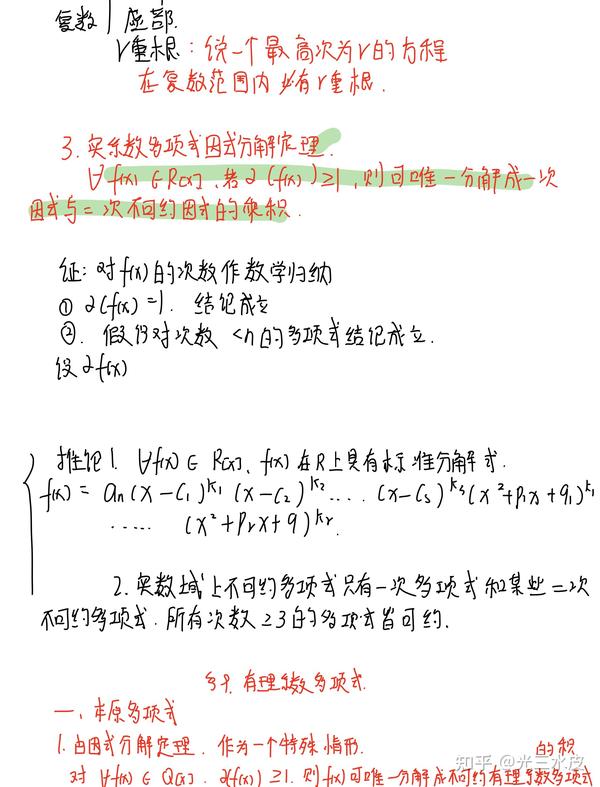 复数 | 虚部.
r重根：统一个最高次为r的方程
在复数范围内必有r重根.
3. 实系数多项式因式分解定理.
∀f(x)∈R[x], 若∂(f(x))≥1, 则可唯一分解成一次
因式与二次不可约因式的乘积.
证: 对f(x)的次数作数学归纳
① ∂(f(x)=1. 结论成立
②. 假设对次数<n的多项式结论成立.
设∂f(x)
推论1. ∀f(x)∈R[x], f(x)在R上具有标准分解式.
f(x) = an(x-c1)^k1 (x-c2)^k2 .... (x-cs)^ks (x²+p1x+q1)^k1
..... (x²+prx+q)^kr.
2. 实数域上不可约多项式只有一次多项式和某些二次
不可约多项式. 所有次数≥3的多项式皆可约.
§9. 有理系数多项式.
一、本原多项式
1. 由因式分解定理. 作为一个特殊情形. 的积
对 ∀f(x)∈Q[x], ∂(f(x))≥1. 则f(x)可唯一分解成不可约有理系数多项式
知乎 @光三水皮